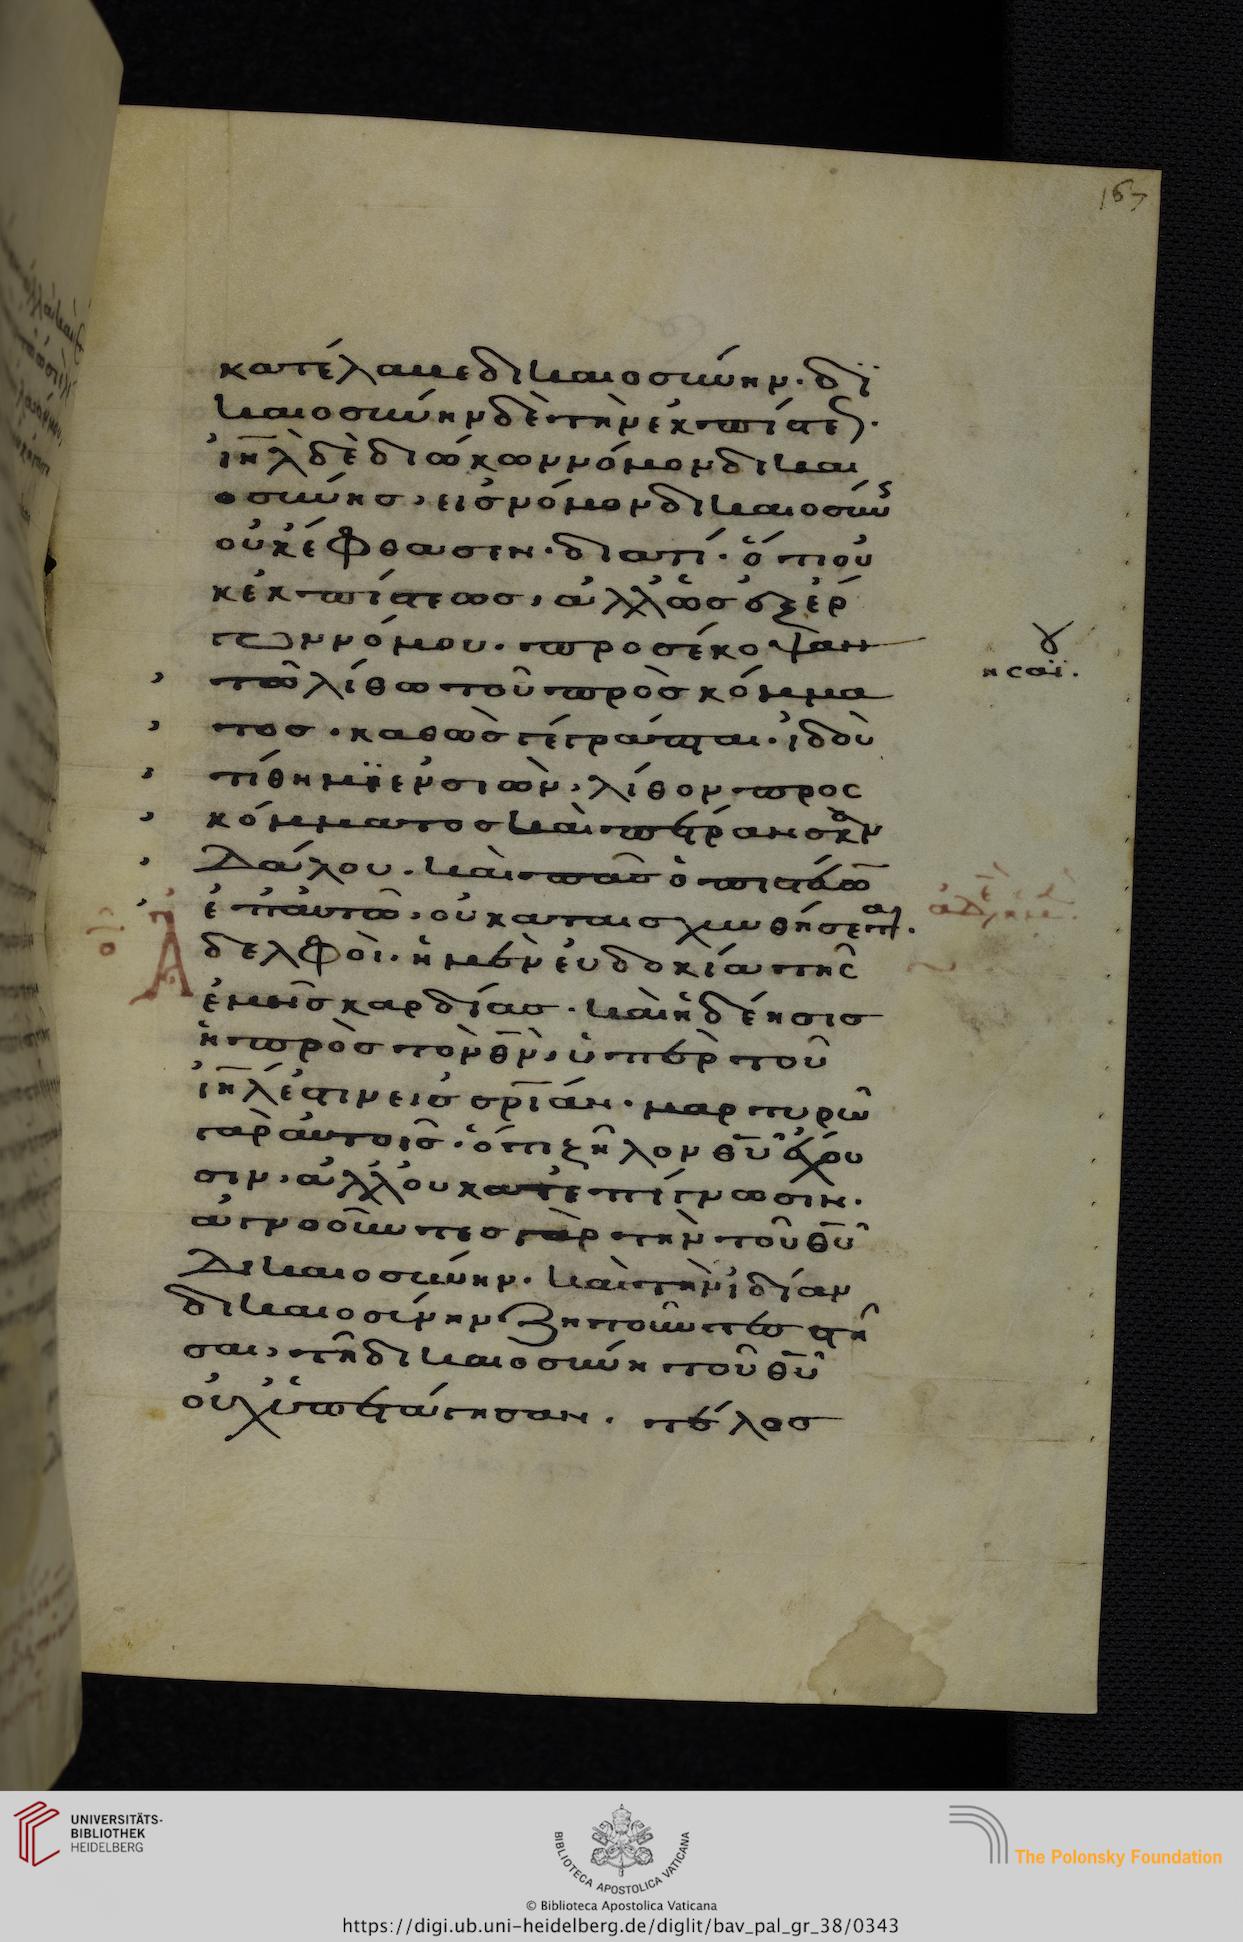 167
κατέλαβε δικαιοσύνην· δϊ
καιοσύνην δὲ τὴν ἐκ πίστε(ως)·
ἰη̅λ δὲ διώκων νόμον δικαι
οσύνης, εἰς νόμον δικαιοσύν(ης)
οὐκ ἔφθασεν· διατί· ὅτι οὐ
κ ἐκ πίστεως, ἀλλ' ὡς ἐξ ἔρ
γων νόμου· προσέκοψαν
γ
ησαϊ.
τῶ λίθω τοῦ προσκόμμα
τος· καθὼς γέγραπται· ἰδοὺ
τίθημϊ ἐν σιὼν, λίθον προς
κόμματος καὶ πέτραν σκαν
δάλου· καὶ πᾶς ὁ πιστεύων
ἐπ' αὐτῶ, οὐ καταισχυνθήσεται·
Ἀδελφοὶ· ἡ μὲν εὐδοκία τῆς
ἐμῆς καρδίας· καὶ ἡ δέησις
ἡ πρὸς τὸν θ̅ν̅, ὑπὲρ τοῦ
ἰη̅λ ἐστιν εἰς σρ̅ίαν· μαρτυρῶ
γὰρ αὐτοῖς· ὅτι ζῆλον θ̅υ̅ ἔχου
σιν, ἀλλ' οὐ κατ' ἐπίγνωσιν·
ἀγνοοῦντες γὰρ τὴν τοῦ θ̅υ̅
δικαιοσύνην· καὶ τὴν ἰδίαν
δικαιοσύνην ζητοῦντες στῆ
σαι, τῆ δικαιοσύνη τοῦ θ̅υ̅
οὐχ ὑπετάγησαν· τέλος
UNIVERSITÄTS-
BIBLIOTHEK
HEIDELBERG
BIBLIOTECA APOSTOLICA VATICANA
The Polonsky Foundation
© Biblioteca Apostolica Vaticana
https://digi.ub.uni-heidelberg.de/diglit/bav_pal_gr_38/0343